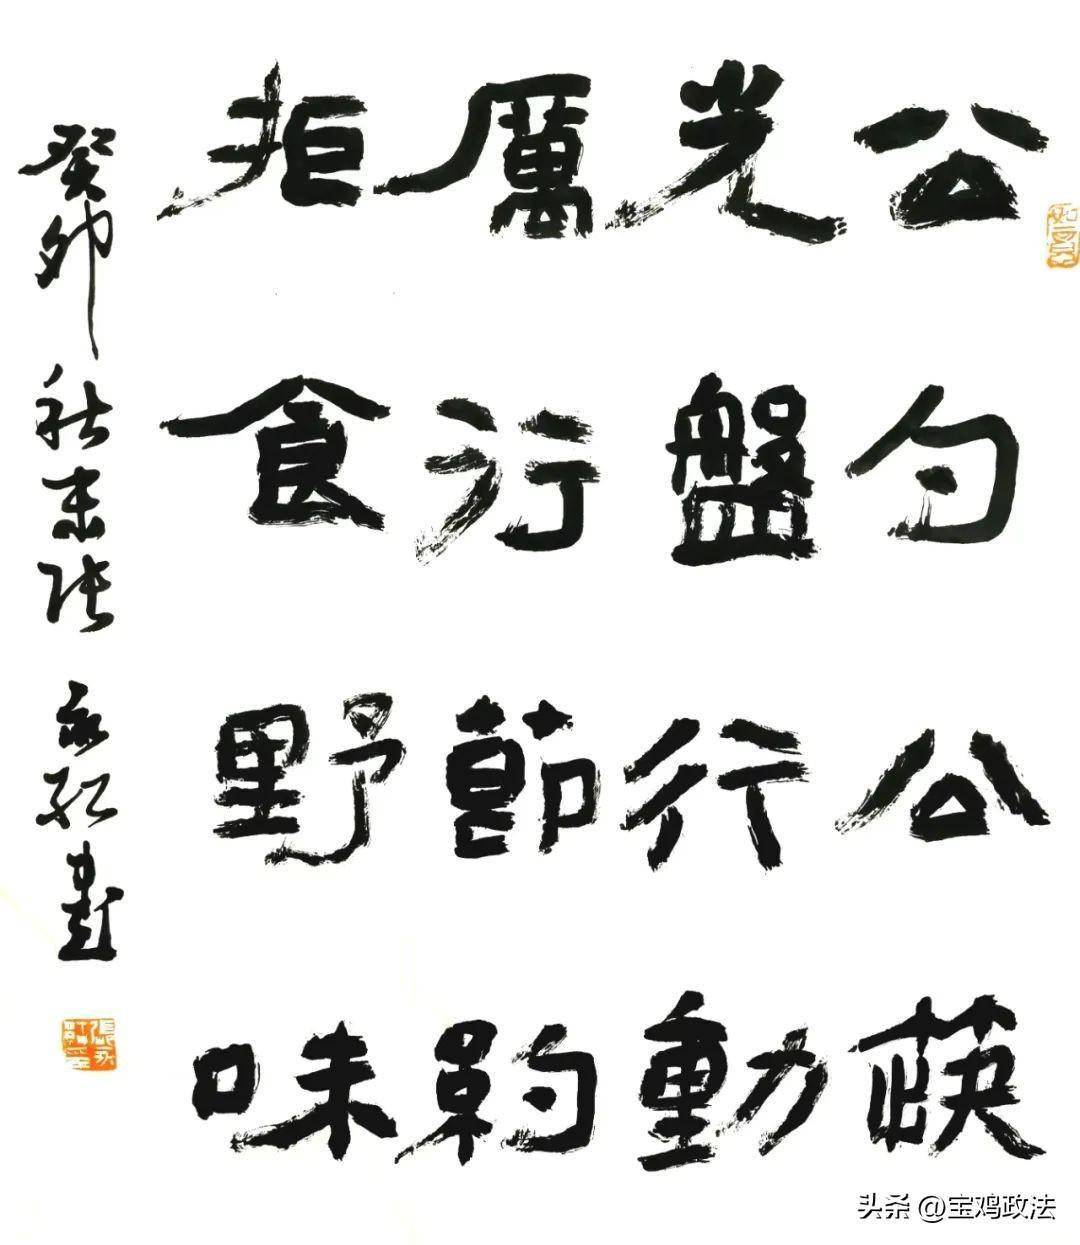 公勺公筷
光盤行動
厲行節約
拒食野味
癸卯秋末张永書
头条 @宝鸡政法